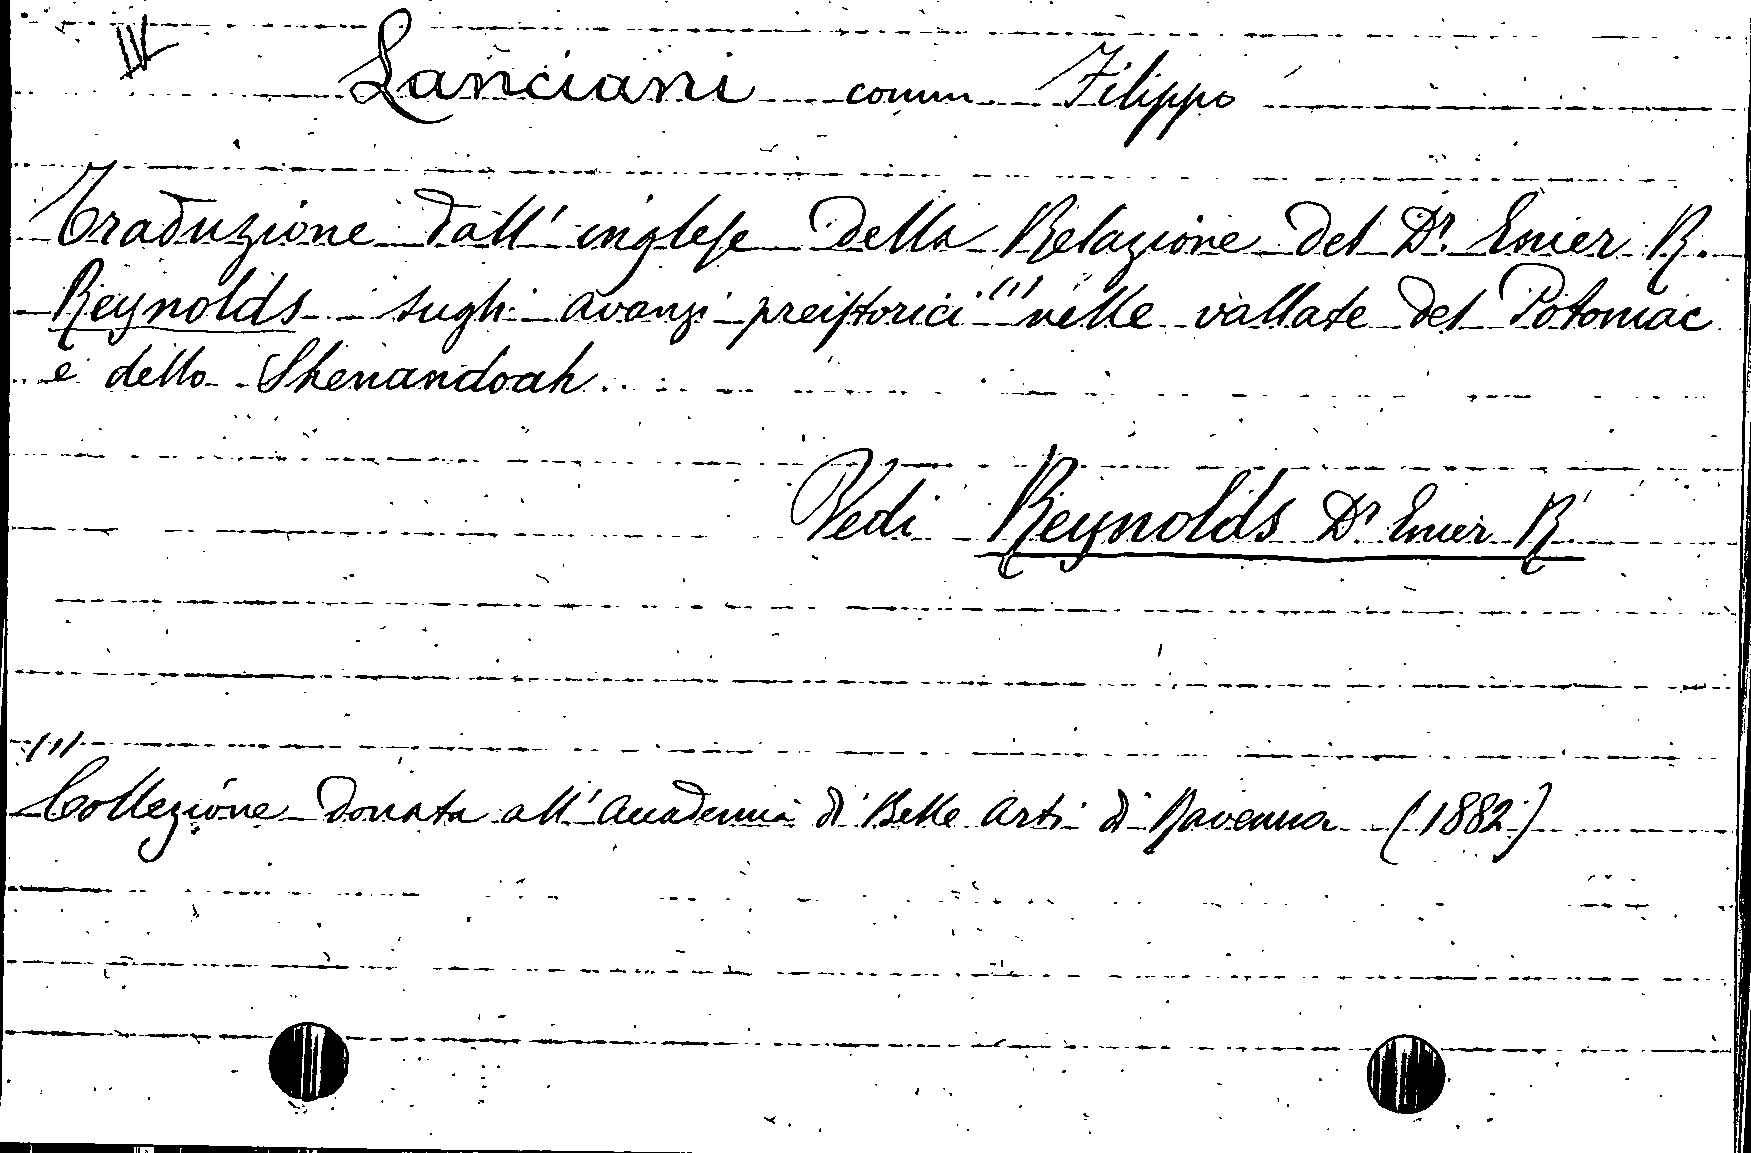 IV
Lanciani comm Filippo
Traduzione dall' inglese della Relazione del Dr. Emer R.
Reynolds sugli avanzi preistorici (1) nelle vallate del Potomac
e dello Shenandoah.
Vedi Reynolds Dr Emer R.
(1)
Collezione donata all' Accademia di Belle Arti di Ravenna (1882)